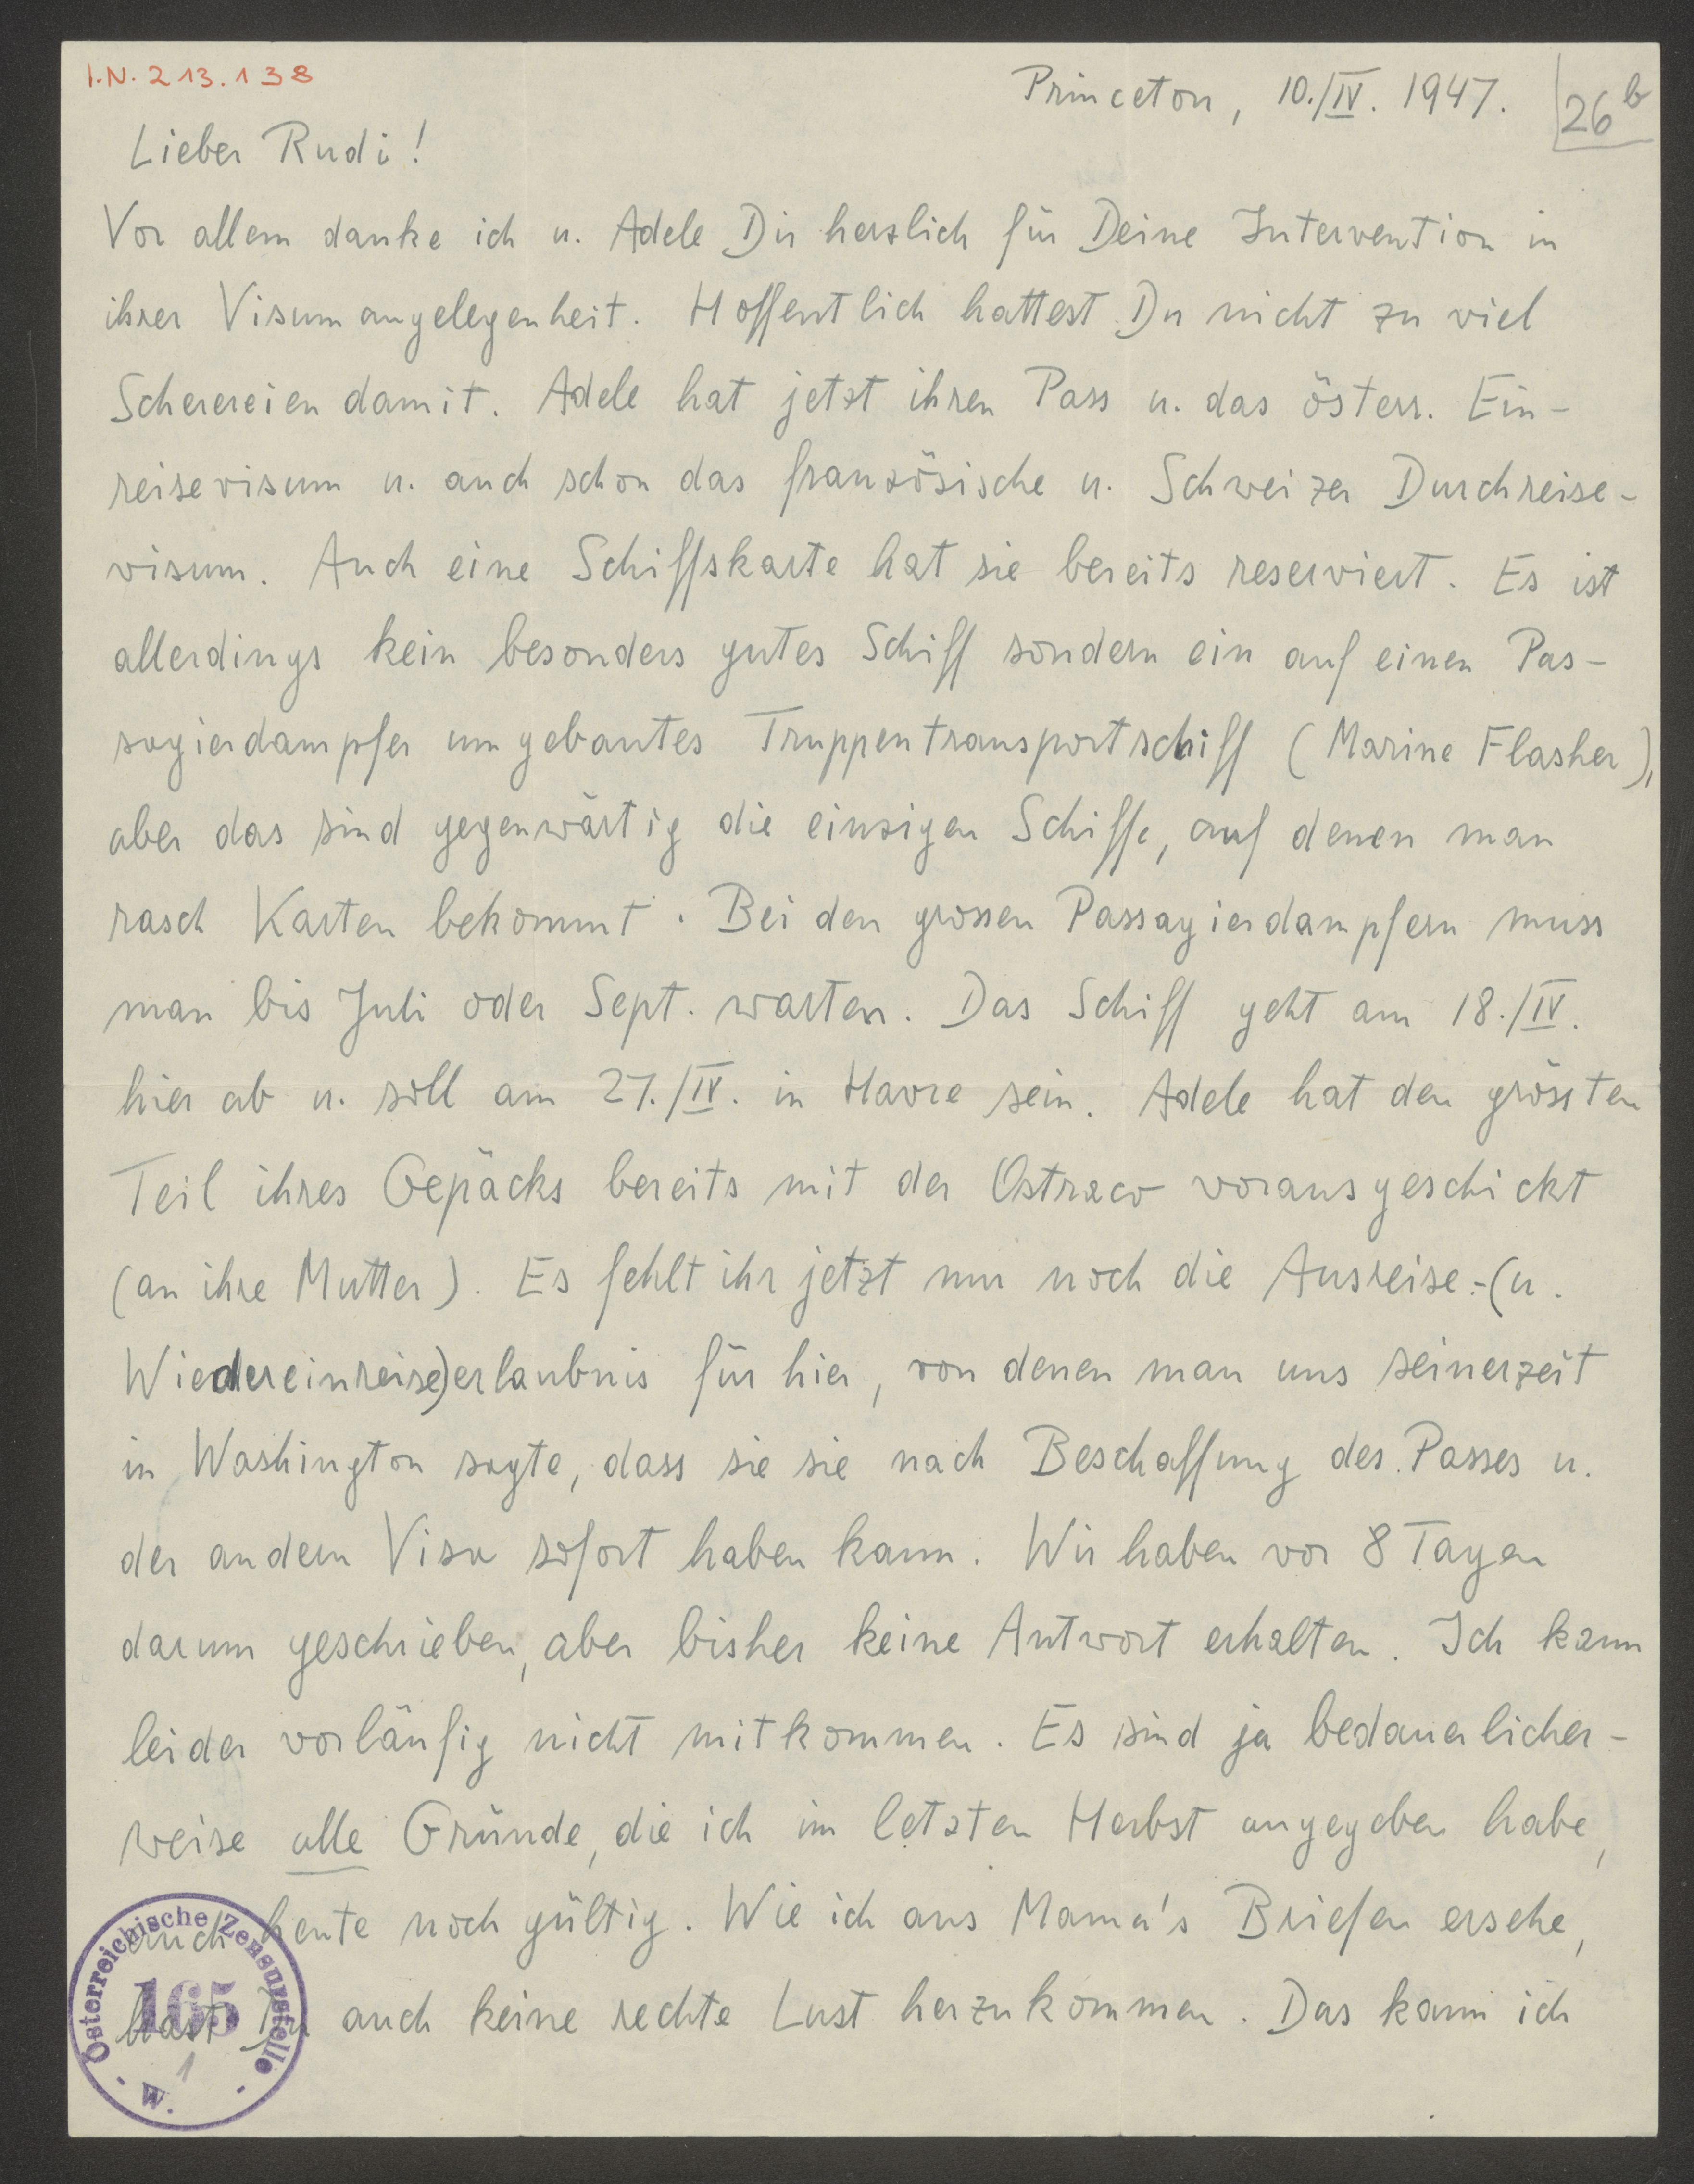 I.N. 213.138
Princeton, 10./IV. 1947.
26b
Lieber Rudi!
Vor allem danke ich u. Adele Dir herzlich für Deine Intervention in
ihrer Visumangelegenheit. Hoffentlich hattest Du nicht zu viel
Scherereien damit. Adele hat jetzt ihren Pass u. das österr. Ein-
reisevisum u. auch schon das französische u. Schweizer Durchreise-
visum. Auch eine Schiffskarte hat sie bereits reserviert. Es ist
allerdings kein besonders gutes Schiff sondern ein auf einen Pas-
sagierdampfer umgebautes Truppentransportschiff (Marine Flasher),
aber das sind gegenwärtig die einzigen Schiffe, auf denen man
rasch Karten bekommt. Bei den grossen Passagierdampfern muss
man bis Juli oder Sept. warten. Das Schiff geht am 18./IV.
hier ab u. soll am 27./IV. in Havre sein. Adele hat den grössten
Teil ihres Gepäcks bereits mit der Ostraco vorausgeschickt
(an ihre Mutter). Es fehlt ihr jetzt nur noch die Ausreise-(u.
Wiedereinreise)erlaubnis für hier, von denen man uns seinerzeit
in Washington sagte, dass sie sie nach Beschaffung des Passes u.
der andern Visa sofort haben kann. Wir haben vor 8 Tagen
darum geschrieben, aber bisher keine Antwort erhalten. Ich kann
leider vorläufig nicht mitkommen. Es sind ja bedauerlicher-
weise alle Gründe, die ich im letzten Herbst angegeben habe,
auch heute noch gültig. Wie ich aus Mama's Briefen ersehe,
hast Du auch keine rechte Lust herzukommen. Das kann ich
Österreichische Zensurstelle
165
1
W.